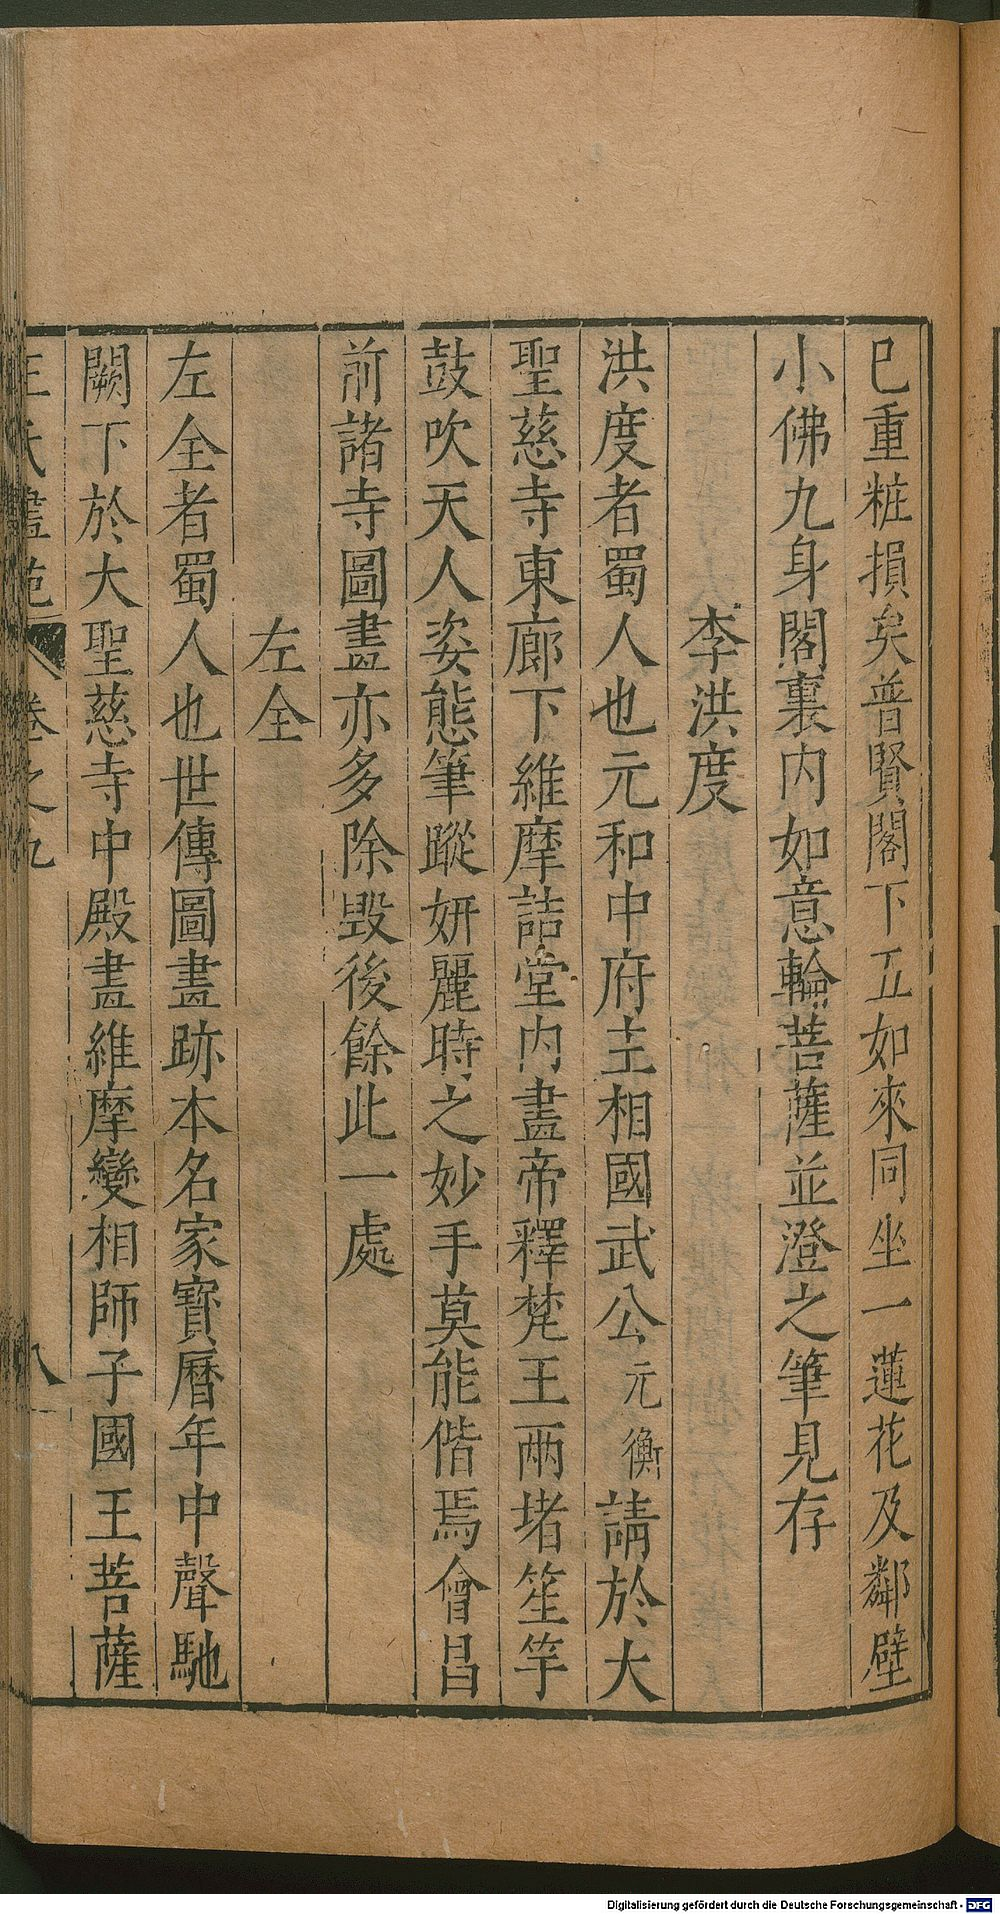 已重粧損矣普賢閣下五如來同坐一蓮花及鄰壁
小佛九身閣裏內如意輪菩薩並澄之筆見存
李洪度
洪度者蜀人也元和中府主相國武公元衡請於大
聖慈寺東廊下維摩詰堂內畫帝釋梵王兩堵笙竽
鼓吹天人姿態筆蹤妍麗時之妙手莫能偕焉會昌
前諸寺圖畫亦多除毀後餘此一處
左全
左全者蜀人也世傳圖畫跡本名家寶曆年中聲馳
闕下於大聖慈寺中殿畫維摩變相師子國王菩薩
王氏畫苑 卷之九 八
Digitalisierung gefördert durch die Deutsche Forschungsgemeinschaft - DFG